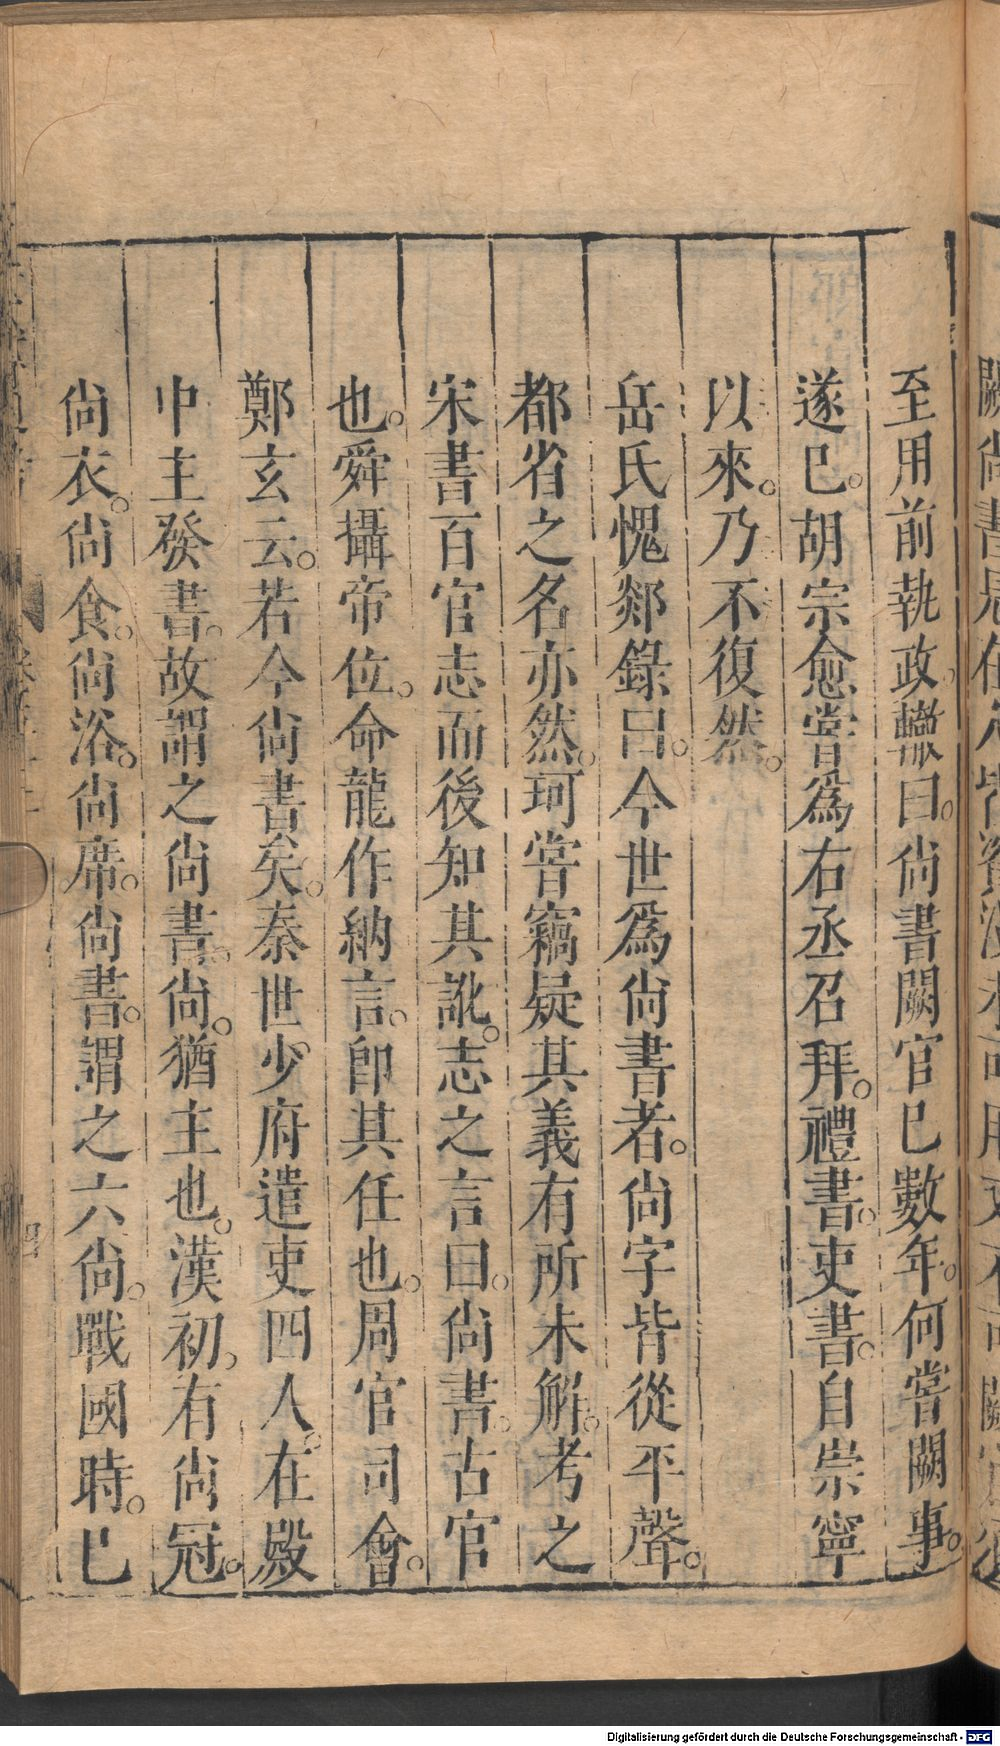 至用前執政轍曰。尚書闕官已數年。何嘗闕事。
遂已。胡宗愈嘗爲右丞召拜。禮書。吏書。自崇寧
以來。乃不復然。
岳氏愧郯錄曰。今世爲尚書者。尚字皆從平聲。
都省之名亦然。珂嘗竊疑其義有所未解。考之
宋書百官志而後知其訛。志之言曰。尚書。古官
也。舜攝帝位。命龍作納言。卽其任也。周官司會。
鄭玄云。若今尚書矣。秦世少府遣吏四人。在殿
中主發書。故謂之尚書。尚。猶主也。漢初。有尚冠。
尚衣。尚食。尚浴。尚席。尚書。謂之六尚。戰國時。已
四
Digitalisierung gefördert durch die Deutsche Forschungsgemeinschaft - DFG